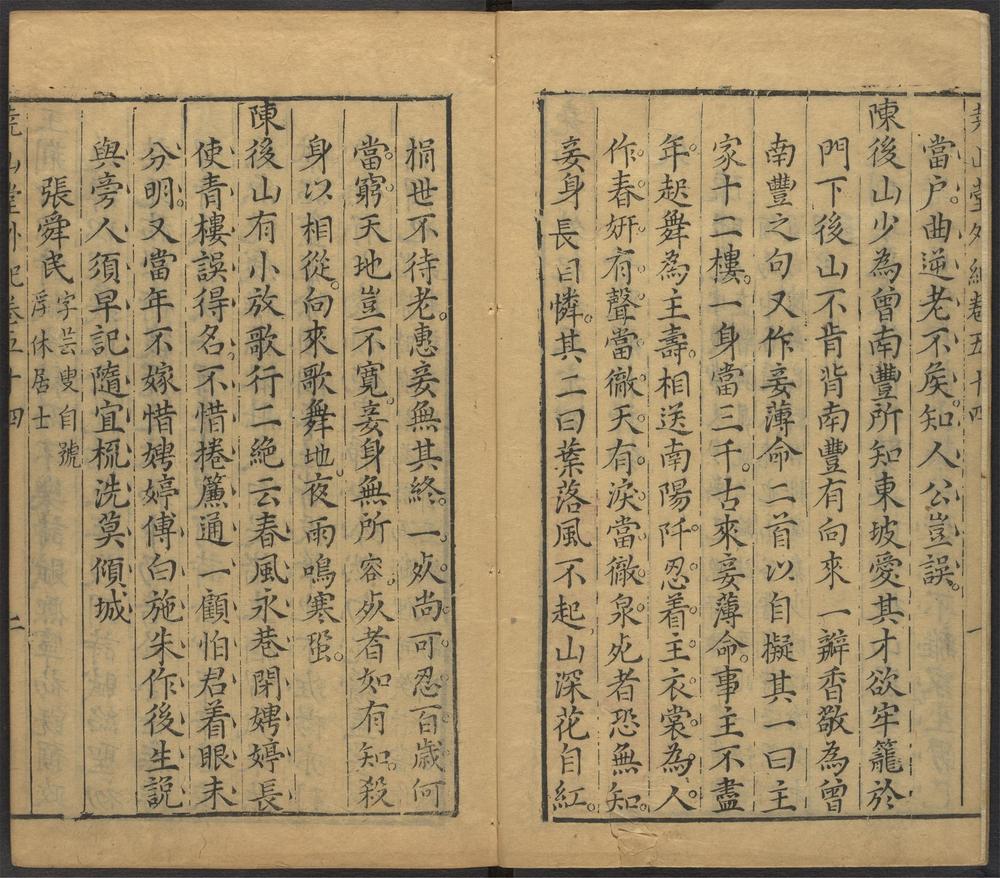 堯山堂外紀卷五十四 一
當户曲逆老不矦知人公豈誤
陳後山少為曾南豐所知東坡愛其才欲牢籠於
門下後山不肯背南豐有向來一瓣香敬為曾
南豐之句又作妾薄命二首以自擬其一曰主
家十二樓一身當三千古來妾薄命事主不盡
年起舞為主壽相送南陽阡忍着主衣裳為人
作春妍有聲當徹天有淚當徹泉死者恐無知
妾身長自憐其二曰葉落風不起山深花自紅
捐世不待老惠妾無其終一死尚可忍百歲何
當窮天地豈不寛妾身無所容死者如有知殺
身以相從向來歌舞地夜雨鳴寒蛩
陳後山有小放歌行二絶云春風永巷閉娉婷長
使青樓誤得名不惜捲簾通一顧怕君着眼未
分明又當年不嫁惜娉婷傅白施朱作後生説
與旁人須早記隨宜梳洗莫傾城
張舜民字芸叟自號浮休居士
堯山堂外紀卷五十四 二